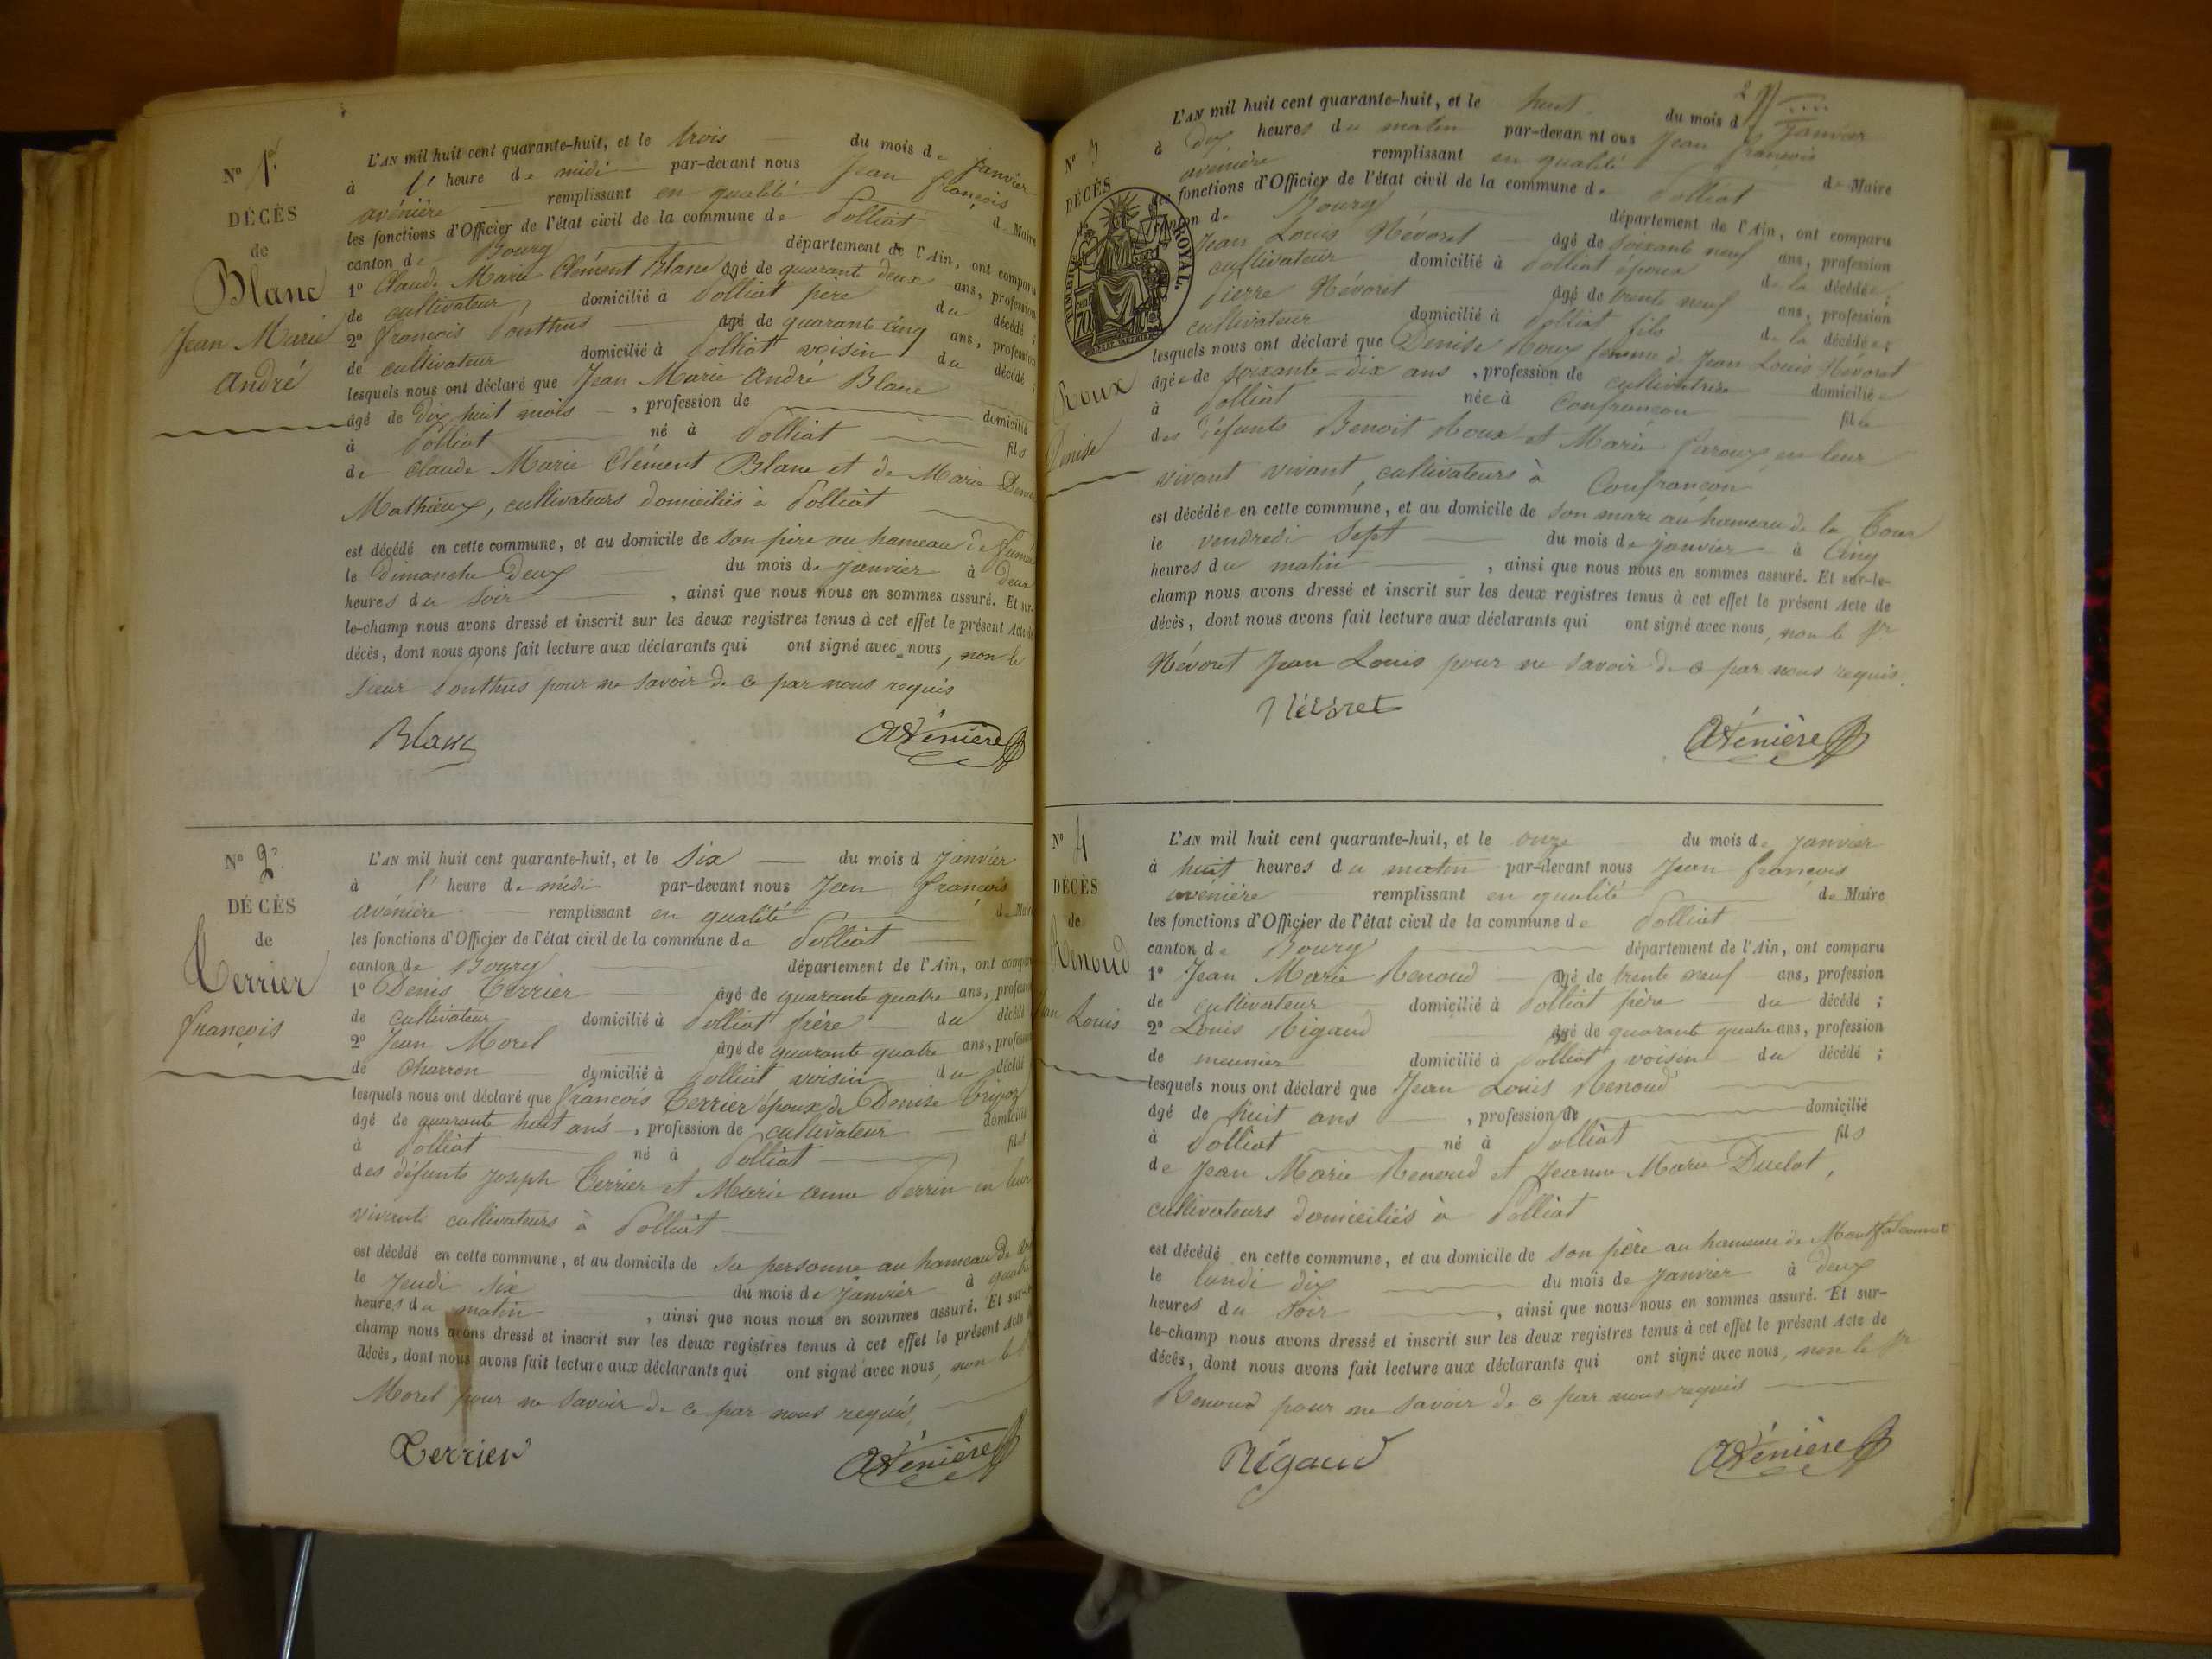 Nº 1er
DÉCÈS
de
Blanc
Jean Marie
André
L'AN mil huit cent quarante-huit, et le trois du mois de janvier
à l' heure de midi par-devant nous Jean françois
avénière remplissant en qualité de Maire
les fonctions d'Officier de l'état civil de la commune de Polliat
canton de Bourg département de l'Ain, ont comparu
1º Claude Marie Clément Blanc âgé de quarant deux ans, profession
de cultivateur, domicilié à Polliat père du décédé ;
2º françois Ponthus âgé de quarante cinq ans, profession
de cultivateur domicilié à Polliat voisin du décédé ;
lesquels nous ont déclaré que Jean Marie André Blanc
âgé de Dix huit mois , profession de domicilié
à Polliat né à Polliat fils
de Claude Marie Clément Blanc et de Marie
Mathieux, cultivateurs domiciliés à Polliat
est décédé en cette commune, et au domicile de son père au hameau de
le Dimanche Deux du mois de janvier à Deux
heures du soir , ainsi que nous nous en sommes assuré. Et sur-
le-champ nous avons dressé et inscrit sur les deux registres tenus à cet effet le présent Acte de
décès, dont nous avons fait lecture aux déclarants qui ont signé avec nous, non le
sieur Ponthus pour ne savoir de ce par nous requis
Blanc Avénière
Nº 2.
DÉCÈS
de
Terrier
françois
L'AN mil huit cent quarante-huit, et le six du mois d janvier
à l' heure de midi par-devant nous Jean françois
avénière remplissant en qualité de Maire
les fonctions d'Officier de l'état civil de la commune de Polliat
canton de Bourg département de l'Ain, ont comparu
1º Denis Terrier âgé de quarante quatre ans, profession
de cultivateur domicilié à Polliat frère du décédé
2º Jean Morel âgé de quarante quatre ans, profession
de Charron domicilié à Polliat voisin du décédé
lesquels nous ont déclaré que françois Terrier époux de Denise
âgé de quarante huit ans , profession de cultivateur domicilié
à Polliat né à Polliat fils
des défunts Joseph Terrier et Marie anne Perrin en leur
vivant cultivateurs à Polliat
est décédé en cette commune, et au domicile de sa personne au hameau de
le Jeudi six du mois de janvier à quatre
heures du matin , ainsi que nous nous en sommes assuré. Et sur-le-
champ nous avons dressé et inscrit sur les deux registres tenus à cet effet le présent Acte de
décès, dont nous avons fait lecture aux déclarants qui ont signé avec nous, non le Sr
Morel pour ne savoir de ce par nous requis,
Terrier Avénière
2
Nº 3
DÉCÈS
TIMBRE ROYAL
70
Roux
Denise
L'AN mil huit cent quarante-huit, et le huit du mois d janvier
à dix heures du matin par-devan nt ous Jean françois
avénière remplissant en qualité de Maire
les fonctions d'Officier de l'état civil de la commune de Polliat
canton de Bourg département de l'Ain, ont comparu
Jean Louis Névoret âgé de soixante neuf ans, profession
cultivateur domicilié à Polliat époux de la décédée ;
Pierre Névoret âgé de trente neuf ans, profession
cultivateur domicilié à Polliat fils de la décédée ;
lesquels nous ont déclaré que Denise Roux femme de Jean Louis Névoret
âgée de soixante-dix ans , profession de cultivatrice domiciliée
à Polliat née à Confrançon fille
des défunts Benoit Roux et Marie en leur
vivant vivant, cultivateurs à Confrançon
est décédée en cette commune, et au domicile de son mari au hameau de la Tour
le vendredi sept du mois de janvier à Cinq
heures du matin , ainsi que nous nous en sommes assuré. Et sur-le-
champ nous avons dressé et inscrit sur les deux registres tenus à cet effet le présent Acte de
décès, dont nous avons fait lecture aux déclarants qui ont signé avec nous, non le Sr
Névoret Jean Louis pour ne savoir de ce par nous requis.
Névoret Avénière
Nº 4
DÉCÈS
de
Renoud
Jean Louis
L'AN mil huit cent quarante-huit, et le onze du mois de janvier
à huit heures du matin par-devant nous Jean françois
avénière remplissant en qualité de Maire
les fonctions d'Officier de l'état civil de la commune de Polliat
canton de Bourg département de l'Ain, ont comparu
1º Jean Marie Renoud âgé de trente neuf ans, profession
de cultivateur domicilié à Polliat père du décédé ;
2º Louis Rigaud âgé de quarante quatre ans, profession
de meunier domicilié à Polliat, voisin du décédé ;
lesquels nous ont déclaré que Jean Louis Renoud
âgé de huit ans , profession de domicilié
à Polliat né à Polliat fils
de Jean Marie Renoud et Jeanne Marie Duclot,
cultivateurs domiciliés à Polliat
est décédé en cette commune, et au domicile de son père au hameau de Montfalconnet
le lundi dix du mois de janvier à deux
heures du soir , ainsi que nous nous en sommes assuré. Et sur-
le-champ nous avons dressé et inscrit sur les deux registres tenus à cet effet le présent Acte de
décès, dont nous avons fait lecture aux déclarants qui ont signé avec nous, non le Sr
Renoud pour ne savoir de ce par nous requis
Rigaud Avénière